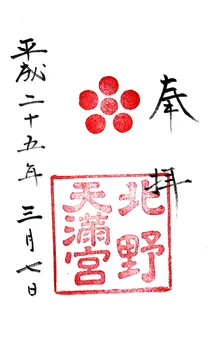 奉拝
北野
天満宮
平成二十五年三月七日